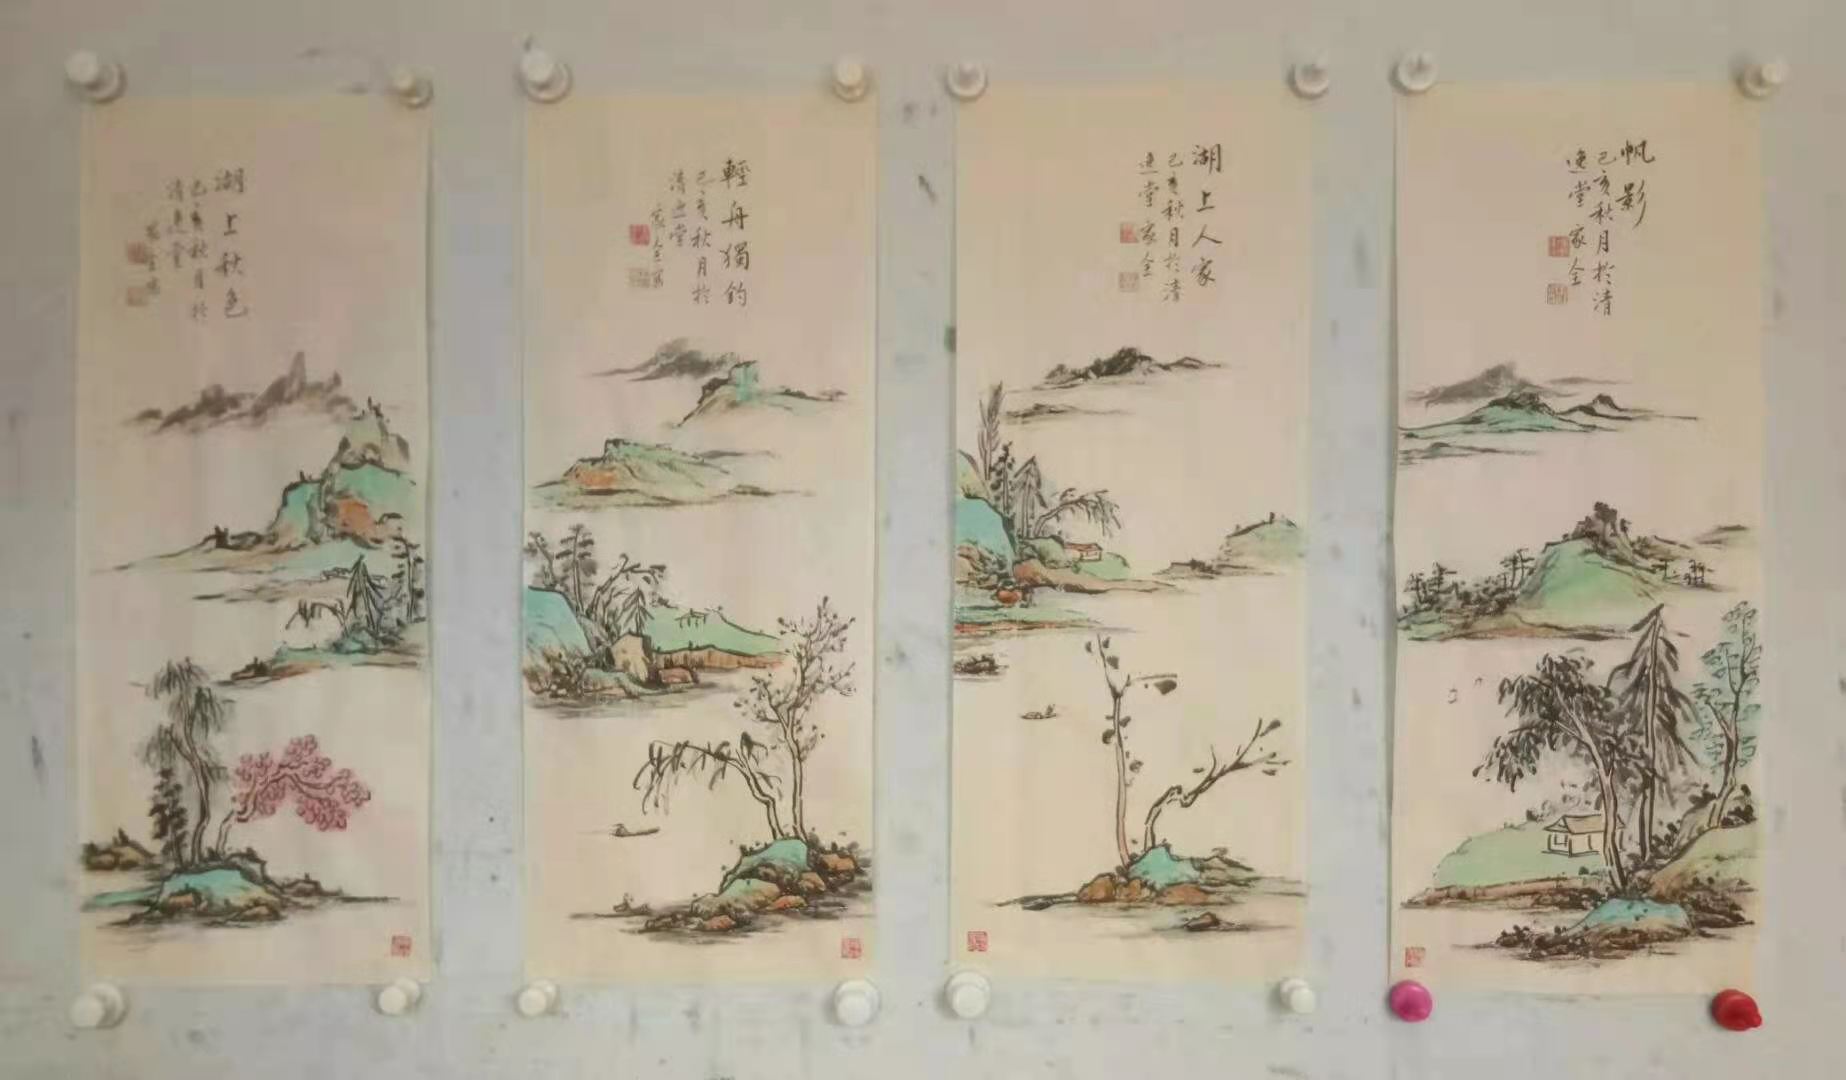 帆影
己亥秋月於清
逸堂家全
湖上人家
己亥秋月於清
逸堂家全
輕舟獨釣
己亥秋月於
清逸堂
家全寫
湖上秋色
己亥秋月於
清逸堂
家全寫